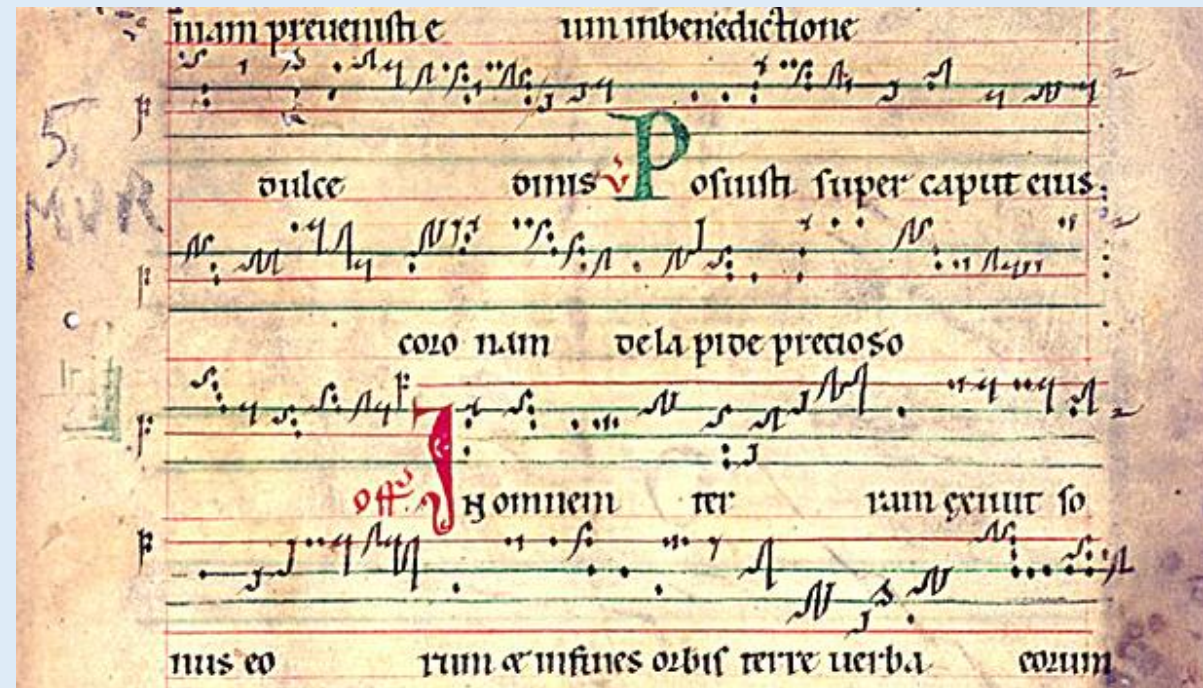 mam preuenisti e um inbenedictione
5
MVR
dulce dinis ꝟ Posuisti super caput eius
coro nam dela pide precioso
off In omnem ter ram exiuit so
nus eo rum & infines orbis terre uerba eorum